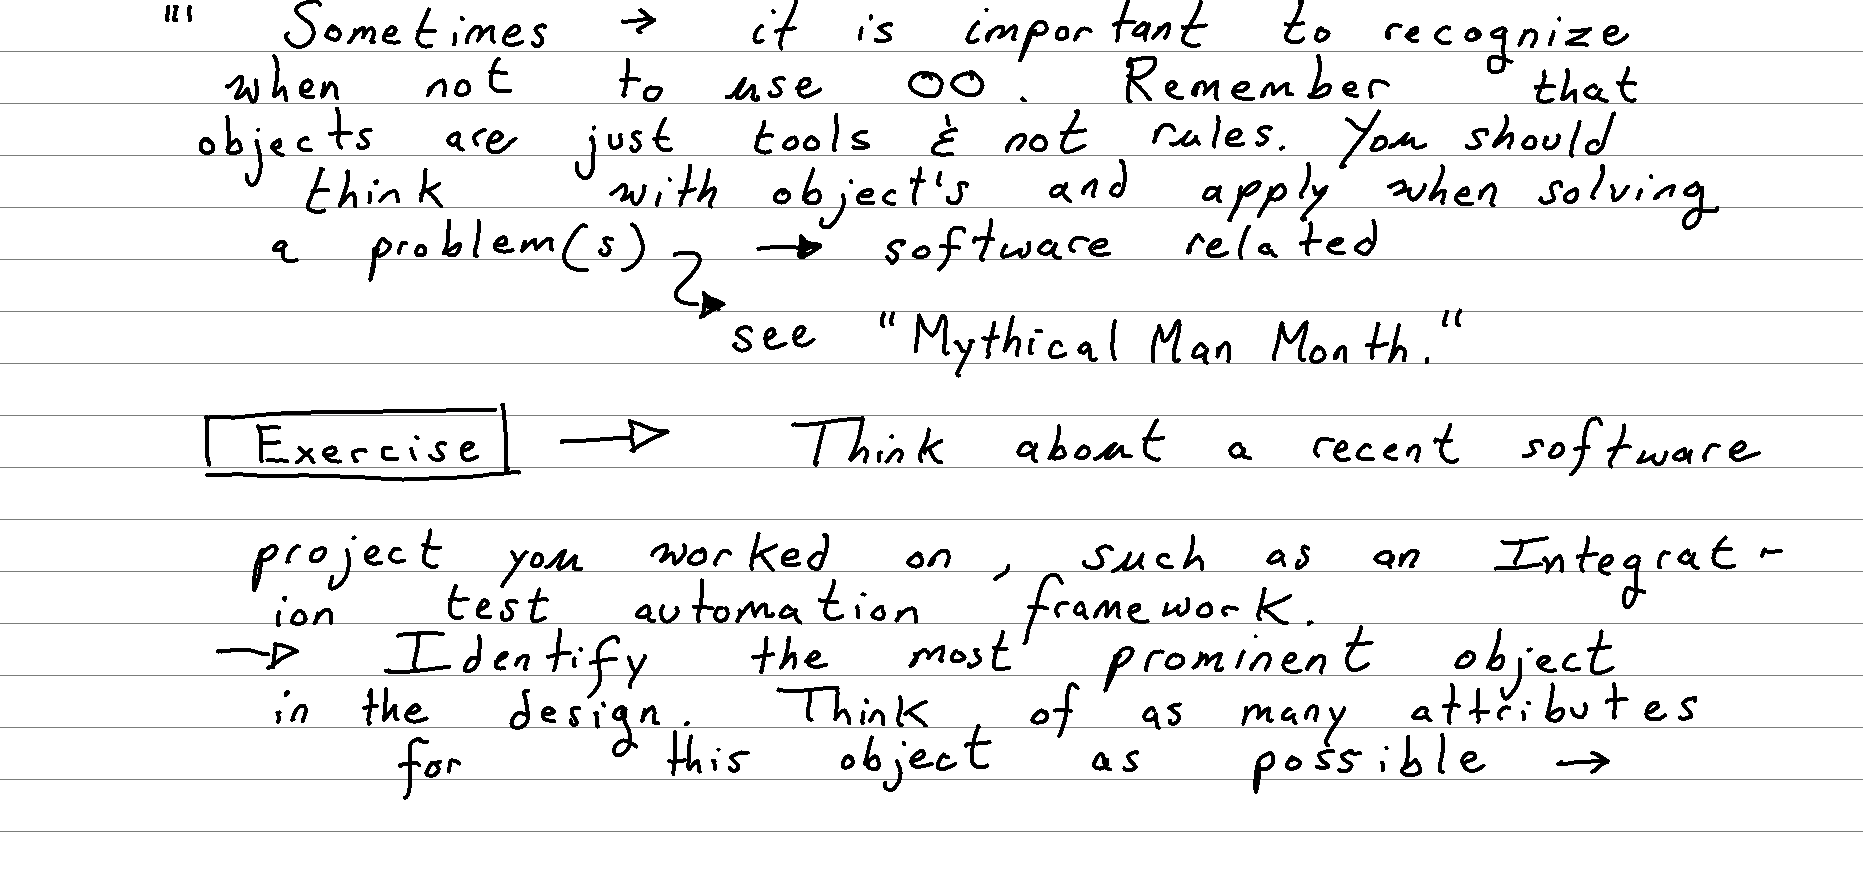 "' Sometimes → it is important to recognize
when not to use OO. Remember that
objects are just tools & not rules. You should
think with object's and apply when solving
a problem(s) → software related
see "Mythical Man Month."
Exercise → Think about a recent software
project you worked on, such as an Integrat-
ion test automation framework.
→ Identify the most prominent object
in the design. Think of as many attributes
for this object as possible →